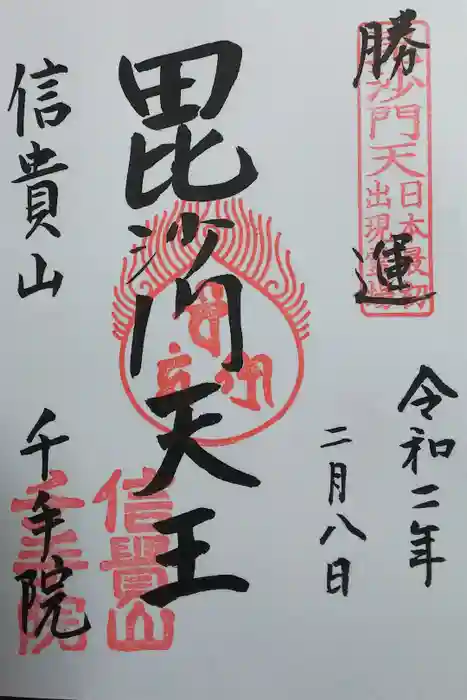 勝運
毘沙門天日本最初出現霊場
令和二年
二月八日
毘沙門天王
信貴山
千手院
信貴山
千手院